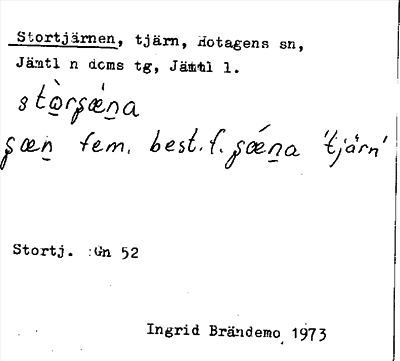 Stortjärnen, tjärn, Hotagens sn,
Jämtl n doms tg, Jämtl l.
stɷ̀rʂǽna
ʂæn fem. best. f. ʂǽna 'tjärn'
Stortj. :Gn 52
Ingrid Brändemo 1973